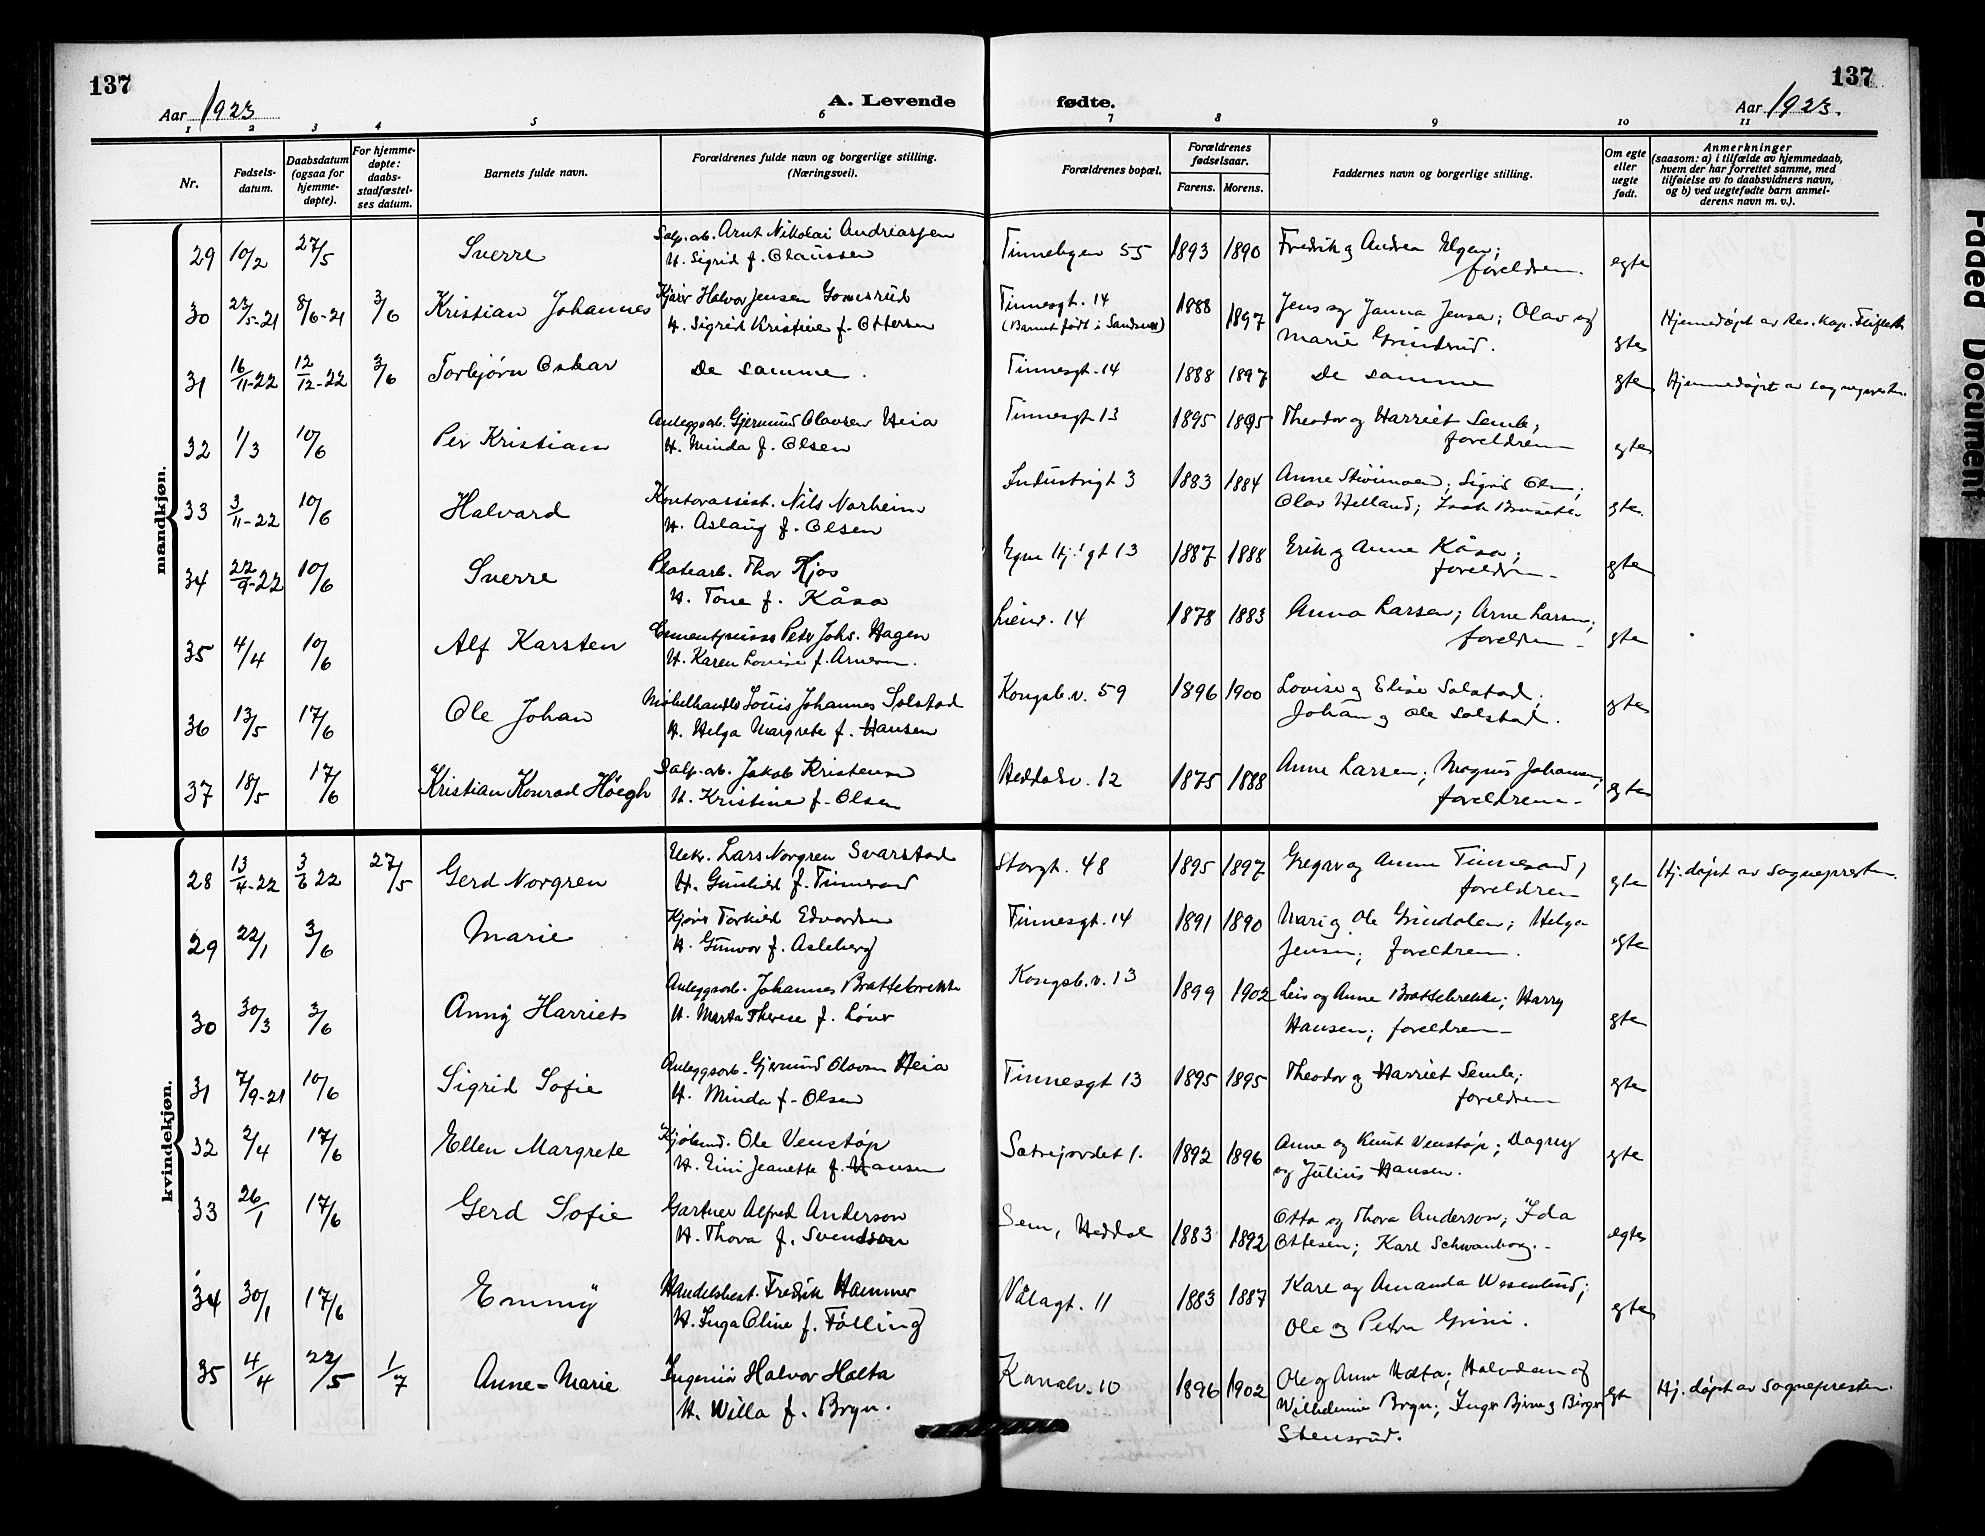 137
137
Aar 1923
A. Levende
fødte.
Aar 1923.
1 2 3 4 5 6 7 8 9 10 11
Nr.
Fødsels-
datum.
Daabsdatum
(ogsaa for
hjemme-
døpte).
For hjemme-
døpte:
daabs-
stadfæstel-
ses datum.
Barnets fulde navn.
Forældrenes fulde navn og borgerlige stilling.
(Næringsvei).
Forældrenes bopæl.
Forældrenes
fødselsaar.
Farens. Morens.
Faddernes navn og borgerlige stilling.
Om egte
eller
uegte
født.
Anmerkninger
(saasom: a) i tilfælde av hjemmedaab,
hvem der har forrettet samme, med
tilføielse av to daabsvidners navn,
og b) ved uegtefødte barn anmel-
derens navn m. v.).
mandkjøn.
29 10/2 27/5 Sverre Salp.arb. Arnt Nikolai Andreassen Tinnebyen 55 1893 1890 Fredrik og Andrea Elgen; egte
H. Sigrid f. Claussen foreldrene.
30 23/5-21 8/6-21 3/6 Kristian Johannes Kjører Halvor Jensen Gomsrud Tinnesgt. 14 1888 1897 Jens og Janna Jensen; Olav og egte Hjemmedøpt av Res. kap.
H. Sigrid Kristine f. Ottersen (Barnet født i Sandnes) Marie Grindrud.
31 16/11-22 12/12-22 3/6 Torbjørn Oskar De samme. Tinnesgt. 14 1888 1897 De samme egte Hjemmedøpt av sognepresten.
32 1/3 10/6 Per Kristian Anleggsarb. Gjermund Olavsen Heia Tinnesgt 13 1895 1895 Theodor og Harriet Semb; egte
H. Minda f. Olsen foreldrene
33 3/11-22 10/6 Halvard Kontorassist. Nils Norheim Industrigt 3 1883 1884 Anne; Sigrid Olsen; egte.
H. Aslaug f. Olsen Olav Helland;
34 22/9-22 10/6 Sverre Platearb. Thor Kjos Egne Hj. gt 13 1887 1888 Erik og Anne Kåsa; egte
H. Tone f. Kåsa foreldrene
35 4/4 10/6 Alf Karsten Peter Johs. Hagen Lienv. 14 1878 1883 Anna Larsen; Arne Larsen; egte
H. Karen Lovise f. Arnesen. foreldrene
36 13/5 17/6 Ole Johan Møbelhandler Louis Johannes Solstad Kongsb.v. 59 1896 1900 Lovise og Elise Solstad; egte
H. Helga Margrete f. Hansen Johan og Ole Solstad.
37 18/5 17/6 Kristian Konrad Høegh Salp.arb. Jakob Kristensen Heddalsv. 12 1875 1888 Anne Larsen; Magnus Johansen; egte
H. Kristine f. Olsen foreldrene
kvindekjøn.
28 13/4-22 3/6 22 27/5 Gerd Norgren Lars Norgren Svarstad Storgt. 48 1895 1897 Gregar og Anne Tinnesand; egte Hj.døpt av sognepresten.
H. Gunhild f. Tinnesand foreldrene
29 22/1 3/6 Marie Kjører Torkild Edvardsen Tinnesgt. 14 1891 1890 Mari og Ole Grindalen; Helga egte
H. Gunvor f. Asleberg Jensen; foreldrene.
30 30/3 3/6 Anny Harriets Anleggsarb. Johannes Brattebrekke Kongsb.v. 13 1899 1902 Leis og Anne Brattebrekke; Harry egte
H. Marta Therese f. Hansen; foreldrene
31 7/9-21 10/6 Sigrid Sofie Anleggsarb. Gjermund Olavsen Heia Tinnesgt 13 1895 1895 Theodor og Harriet Semb; egte
H. Minda f. Olsen foreldrene
32 2/4 17/6 Ellen Margrete Kjøbmd. Ole Venstøp Sætrejordet 1. 1892 1896 Anne og Knut Venstøp; Dagny egte
H. Jeanette f. Hansen og Julius Hansen.
33 26/1 17/6 Gerd Sofie Gartner Alfred Anderson Sem, Heddal 1883 1892 Otto og Thora Anderson; Ida egte
H. Thora f. Svendsen Ottesen; Karl Schwanborg.
34 30/1 17/6 Emmy Handelsbest. Fredrik Hammer Vålagt. 11 1883 1887 Kare og Amanda Wesenlund; egte
H. Inga Oline f. Følling Ole og Petra Grini.
35 4/4 22/5 1/7 Anne-Marie Ingeniør Halvor Holta Kanalv. 10 1896 1902 Ole og Anne Holta; Halvdan og egte Hj.døpt av sognepresten.
H. Willa f. Bryn. Wilhelmine Bryn; Inger Bjerne og Birger
Stensrud.
Faded Document